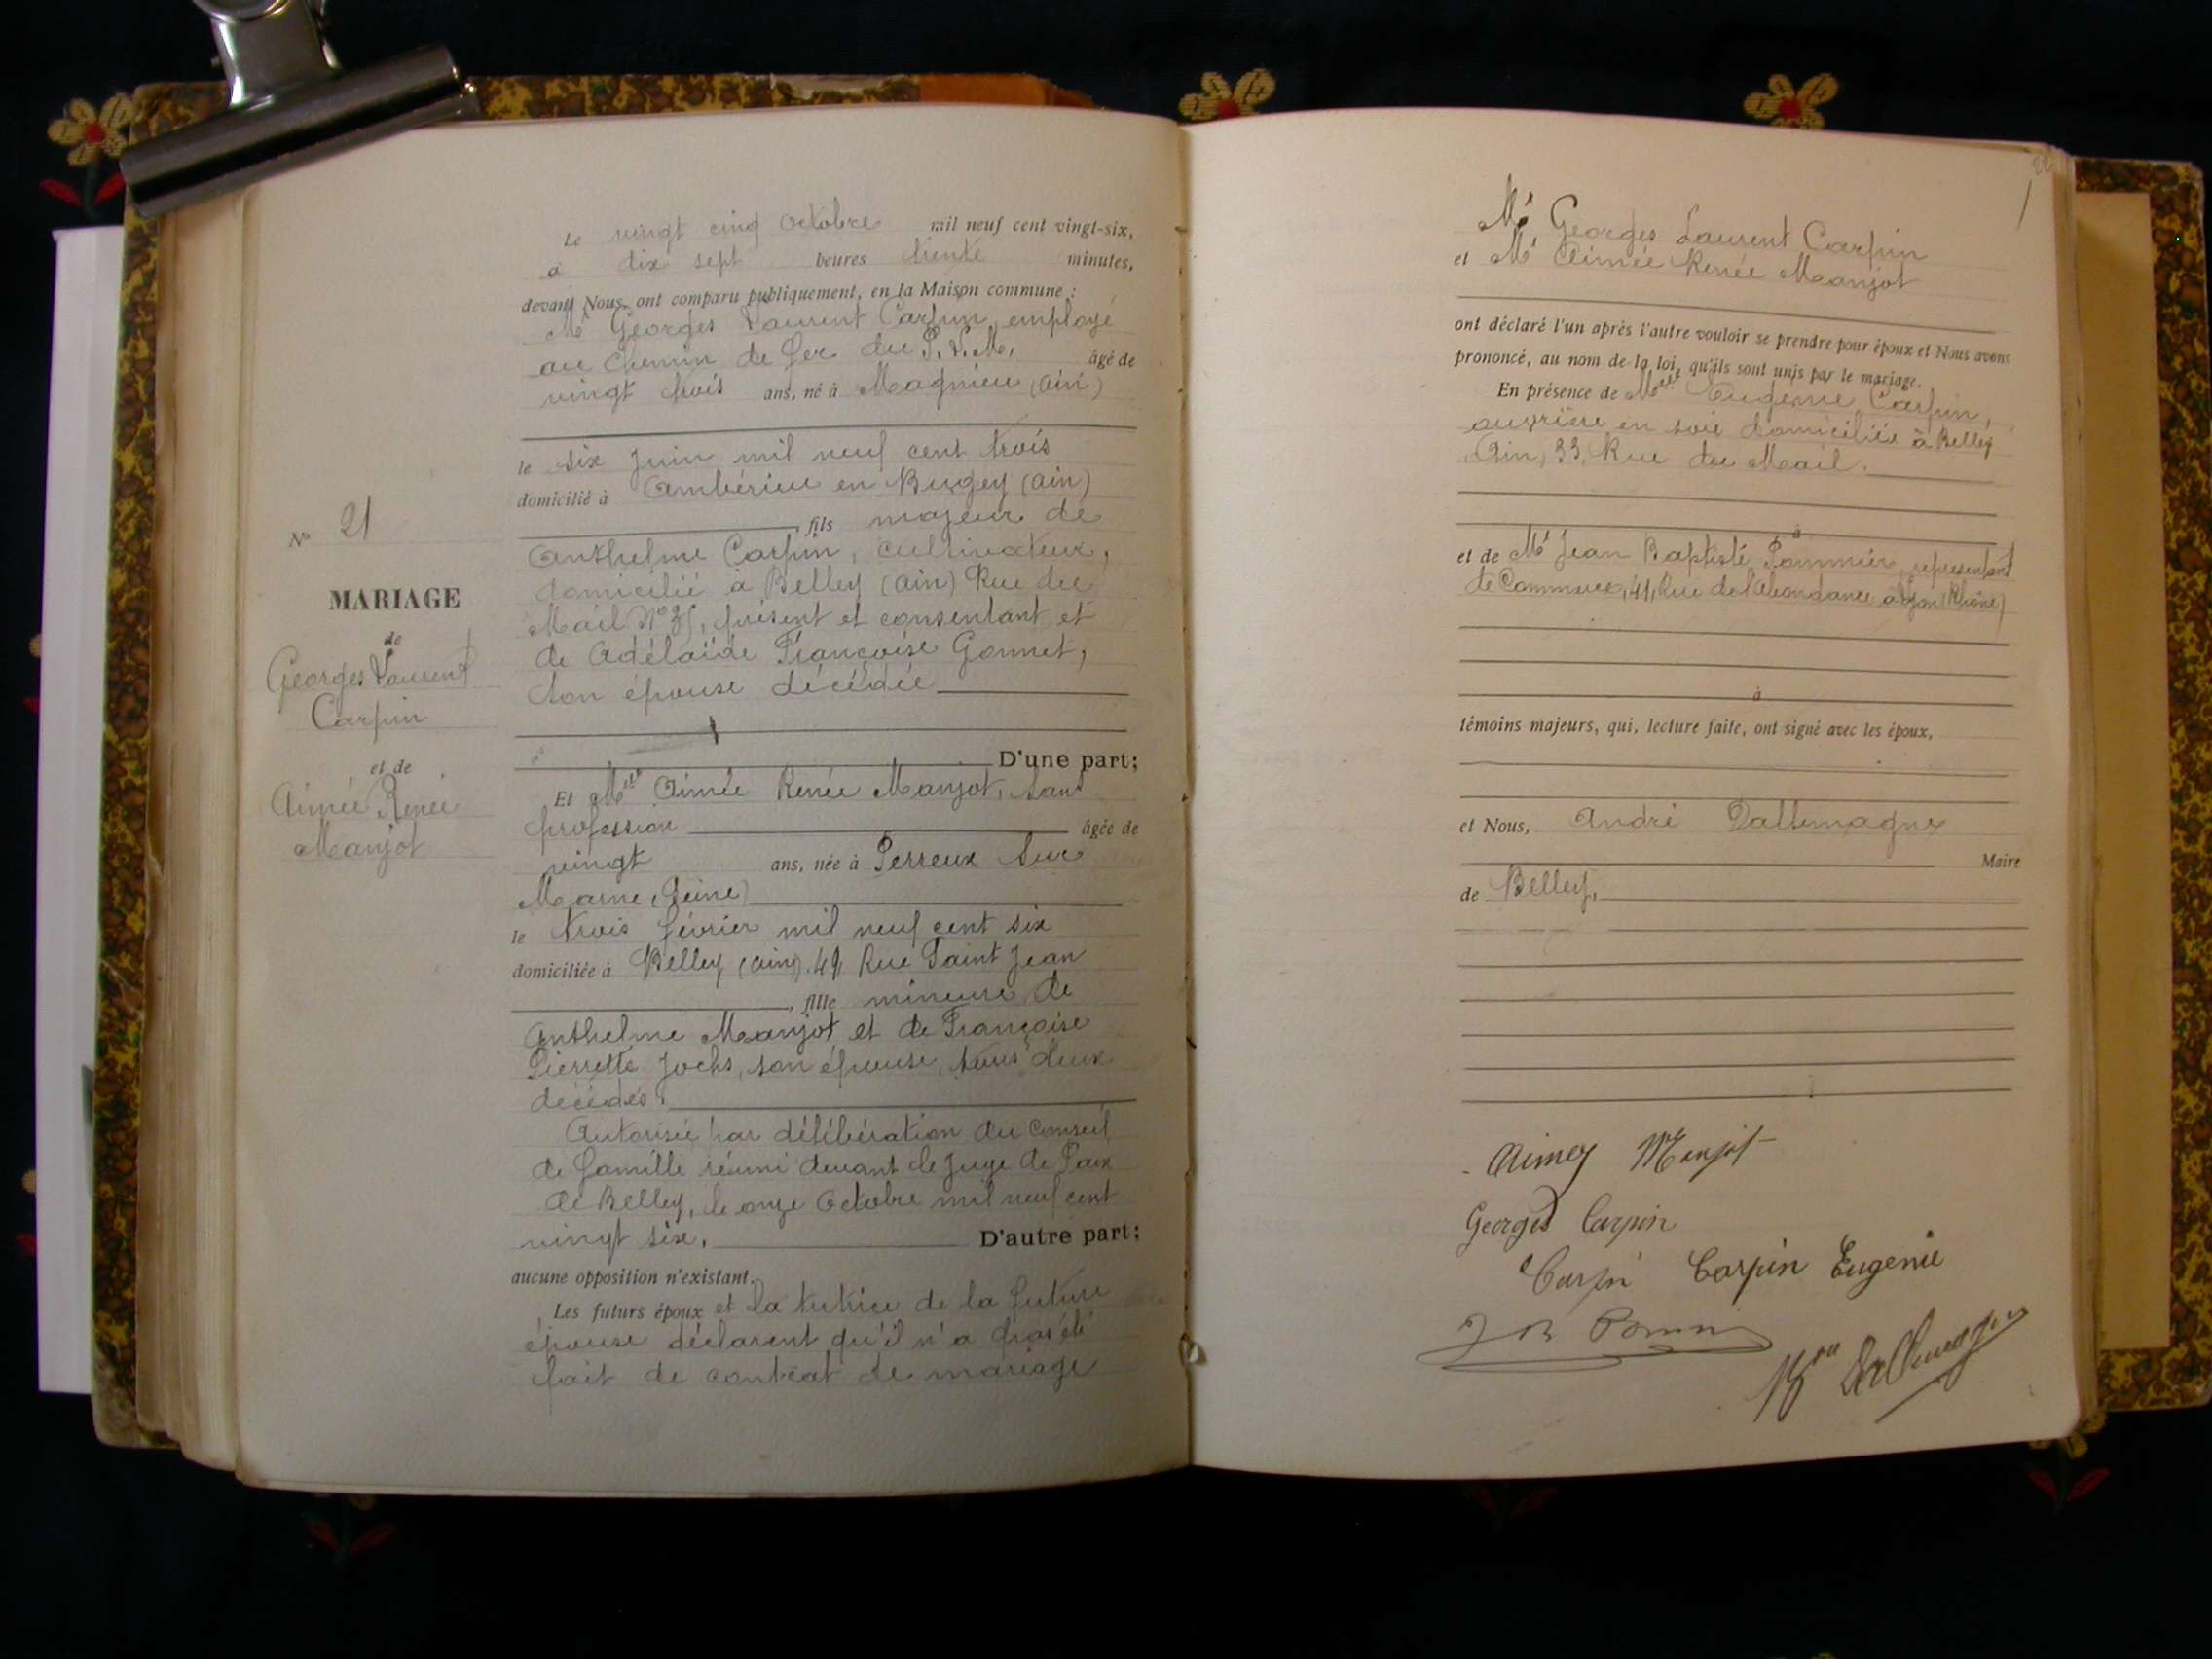 Nº 21
MARIAGE
de
Georges Laurent
Carpin
et de
Aimée Renée
Manjot
Le vingt cinq Octobre mil neuf cent vingt-six,
à dix sept heures trente minutes,
devant Nous, ont comparu publiquement, en la Maison commune :
Mr Georges Laurent Carpin employé
au Chemin de fer du P.L.M. âgé de
vingt trois ans, né à Magnieu (Ain)
le six juin mil neuf cent trois
domicilié à Ambérieu en Bugey (Ain)
, fils majeur de
Anthelme Carpin, cultivateur,
domicilié à Belley (Ain) Rue du
Mail Nº, présent et consentant et
de Adélaïde Françoise Gonnet,
son épouse décédée
D'une part;
Et Melle Aimée Renée Manjot, sans
profession âgée de
vingt ans, née à Perreux sur
Marne (Seine)
le trois février mil neuf cent six
domiciliée à Belley (Ain), 49 Rue Saint Jean
, fille mineure de
Anthelme Manjot et de Françoise
Pierrette Jochs, son épouse, tous deux
décédés.
Autorisée par délibération du Conseil
de famille réuni devant le Juge de Paix
de Belley, le onze Octobre mil neuf cent
vingt six. D'autre part;
aucune opposition n'existant.
Les futurs époux et la tutrice de la future
épouse déclarent qu'il n'a pas été
fait de contrat de mariage
Mr Georges Laurent Carpin
et Me Aimée Renée Manjot
ont déclaré l'un après l'autre vouloir se prendre pour époux et Nous avons
prononcé, au nom de la loi, qu'ils sont unis par le mariage.
En présence de Melle Eugénie Carpin,
ouvrière en soie domiciliée à Belley
Ain, 33, Rue du Mail.
à
et de Mr Jean Baptiste Pommier, représentant
de Commerce, 41, Rue de l'Abondance à Lyon (Rhône)
à
témoins majeurs, qui, lecture faite, ont signé avec les époux,
et Nous, André Dallemagne
Maire
de Belley,
Aimey Manjot
Georges Carpin
Carpin Carpin Eugenie
J B Pommier
Bon Dallemagne